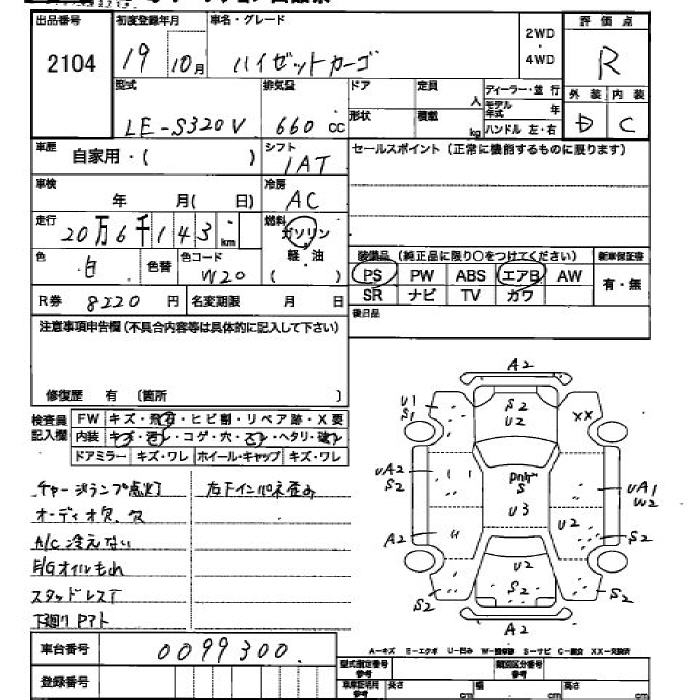 出品番号 初度登録年月 車名・グレード 2WD・4WD 評価点
2104 19 10月 ハイゼットカーゴ R
型式 排気量 ドア 定員 人 ディーラー・並行 外装 内装
LE-S320V 660cc 形状 積載 kg モデル年式 年 D C
ハンドル 左・右
車歴 自家用・( ) シフト 1AT セールスポイント(正常に機能するものに限ります)
車検 年 月( 日) 冷房 AC
走行 20万6千143km 燃料 ガソリン
軽・油
色 白 色替 色コード W20 ( ) 装備品(純正品に限り○をつけてください) 新車保証書
PS PW ABS エアB AW 有・無
SR ナビ TV カワ
R券 8220円 名変期限 月 日 後日品
注意事項申告欄(不具合内容等は具体的に記入して下さい)
修復歴 有 (箇所 )
検査員記入欄 FW キズ・飛石・ヒビ割・リペア跡・X要
内装 キズ・汚レ・コゲ・穴・スレ・ヘタリ・破レ
ドアミラー キズ・ワレ ホイール・キャップ キズ・ワレ
チャージランプ点灯 右下インパネ歪み
オーディオ欠、穴
A/C冷えない
E/Gオイルもれ
スタッドレスT
下廻りPアト
A2
U1 S1 S2 U2 XX
UA2 S2 S U3 UA1 W2
A2 U2 S2
U2
S2 S2 S2
A2
車台番号 0099300
A-キズ E-エクボ U-凹み W-補修跡 S-サビ C-腐食 XX-交換済
登録番号 型式指定番号 参考 類別区分番号 参考
車庫証明用 参考 長さ cm 幅 cm 高さ cm